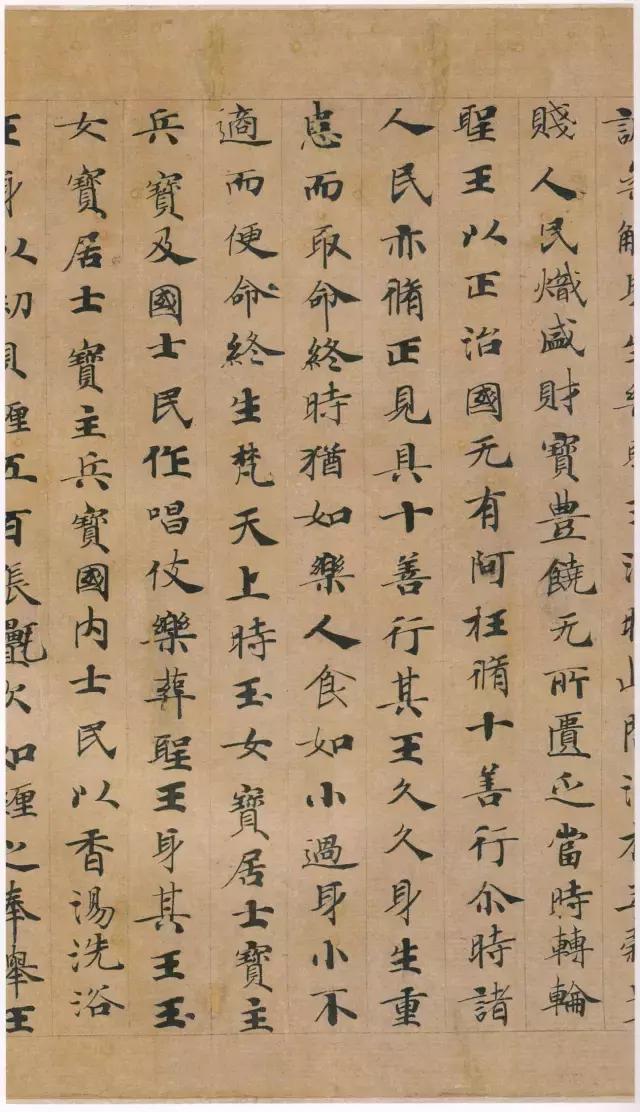 賤人民熾盛財寶豊饒无所匱乏當時轉輪
聖王以正治國无有阿枉脩十善行尒時諸
人民亦脩正見具十善行其王久久身生重
患而取命終時猶如樂人食如小過身小不
適而便命終生梵天上時玉女寶居士寶主
兵寶及國士民作唱伎樂葬聖王身其王玉
女寶居士寶主兵寶國内士民以香湯洗浴
王身以劫貝纒五百張氎次如纒之奉舉王